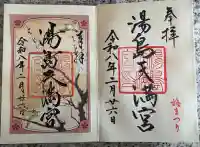 奉拝
湯島天満宮
令和八年二月廿六日
奉拝
湯島天満宮
令和八年二月廿六日
梅まつり